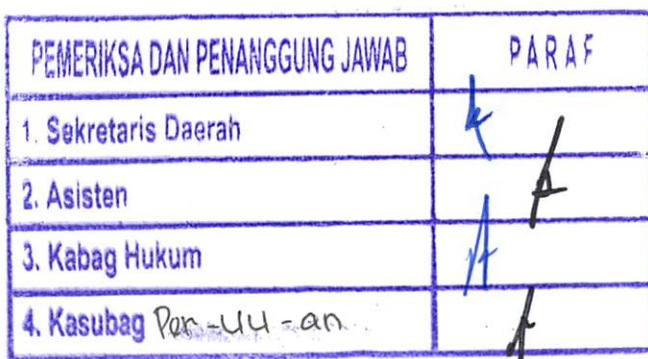 PEMERIKSA DAN PENANGGUNG JAWAB PARAF
1. Sekretaris Daerah
2. Asisten
3. Kabag Hukum
4. Kasubag Per-UU-an